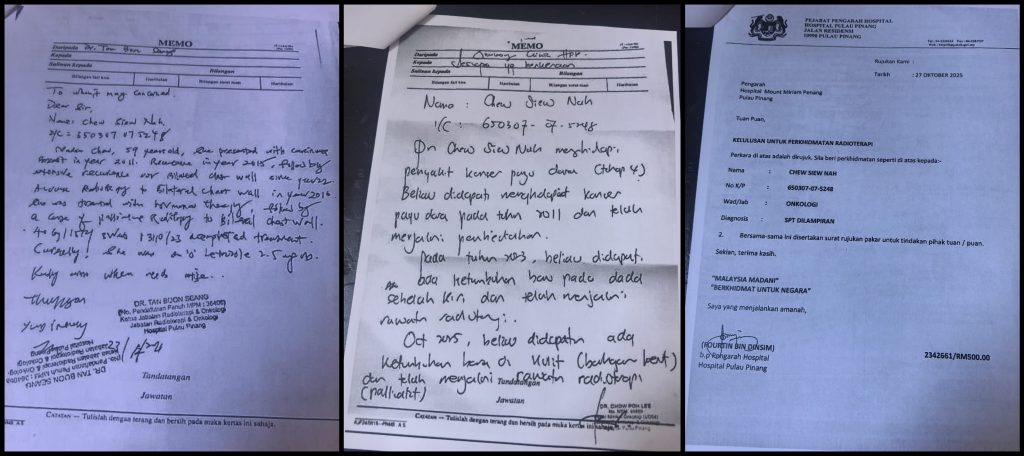 MEMO
Daripada Dr. Tan Bijon Seang
Kepada
Salinan kepada
Bilangan
Bilangan fail kini
Haribulan
Bilangan surat masuk
Haribulan
To whom it may concerned.
Dear Sir,
Name: Chew Siew Nah
I/C: 650307-07-5248
Madam Chew, 59 years old, she presented with
breast in year 2011. Recurrence in year 2015, follow by
extensive recurrence over bilateral chest wall since
Radiotherapy to Bilateral chest wall in year 2016
She was treated with hormonal therapy, follow by
a course of palliative Radiotherapy to Bilateral chest wall.
40Gy/15# 13/10/23 completed treatment.
Currently, she was on Letrozole 2.5mg
Kindly when needs
Thank you
DR. TAN BIJON SEANG
(No. Pendaftaran Penuh MPM: 36406)
Ketua Jabatan Radioterapi & Onkologi
Jabatan Radioterapi & Onkologi
Hospital Pulau Pinang
Tandatangan
Jawatan
CATATAN — Tulislah dengan terang dan bersih pada muka kertas ini sahaja.
MEMO
Daripada HPP.
Kepada Sesiapa yg berkenaan
Salinan kepada
Bilangan
Bilangan fail kini
Haribulan
Bilangan surat masuk
Haribulan
Nama : Chew Siew Nah
I/C : 650307-07-5248
Pn Chew Siew Nah menghidapi
penyakit kanser payu dara (tahap 4)
Beliau didapati menghidapi kanser
payu dara pada tahun 2011 dan telah
menjalani pembedahan.
pada tahun 2023, beliau didapati
ada ketumbuhan baru pada dada
sebelah kiri dan telah menjalani
rawatan radioterapi.
Oct 2025, beliau didapati ada
ketumbuhan baru di kulit
dan telah menjalani rawatan radioterapi
(palliatif)
Tandatangan
Jawatan
DR. CHOW POH LEE
CATATAN — Tulislah dengan terang dan bersih pada muka kertas ini sahaja.
PEJABAT PENGARAH HOSPITAL
HOSPITAL PULAU PINANG
JALAN RESIDENSI
10990 PULAU PINANG
Rujukan Kami :
Tarikh : 27 OKTOBER 2025
Pengarah
Hospital Mount Miriam Penang
Pulau Pinang
Tuan Puan,
KELULUSAN UNTUK PERKHIDMATAN RADIOTERAPI
Perkara di atas adalah dirujuk. Sila beri perkhidmatan seperti di atas kepada:-
Nama : CHEW SIEW NAH
No K/P : 650307-07-5248
Wad/lab : ONKOLOGI
Diagnosis : SPT DILAMPIRAN
2. Bersama-sama ini disertakan surat rujukan pakar untuk tindakan pihak tuan / puan.
Sekian, terima kasih.
"MALAYSIA MADANI"
"BERKHIDMAT UNTUK NEGARA"
Saya yang menjalankan amanah,
(ROURTIN BIN DINSIM)
b.p Pengarah Hospital
Hospital Pulau Pinang
2342661/RM500.00